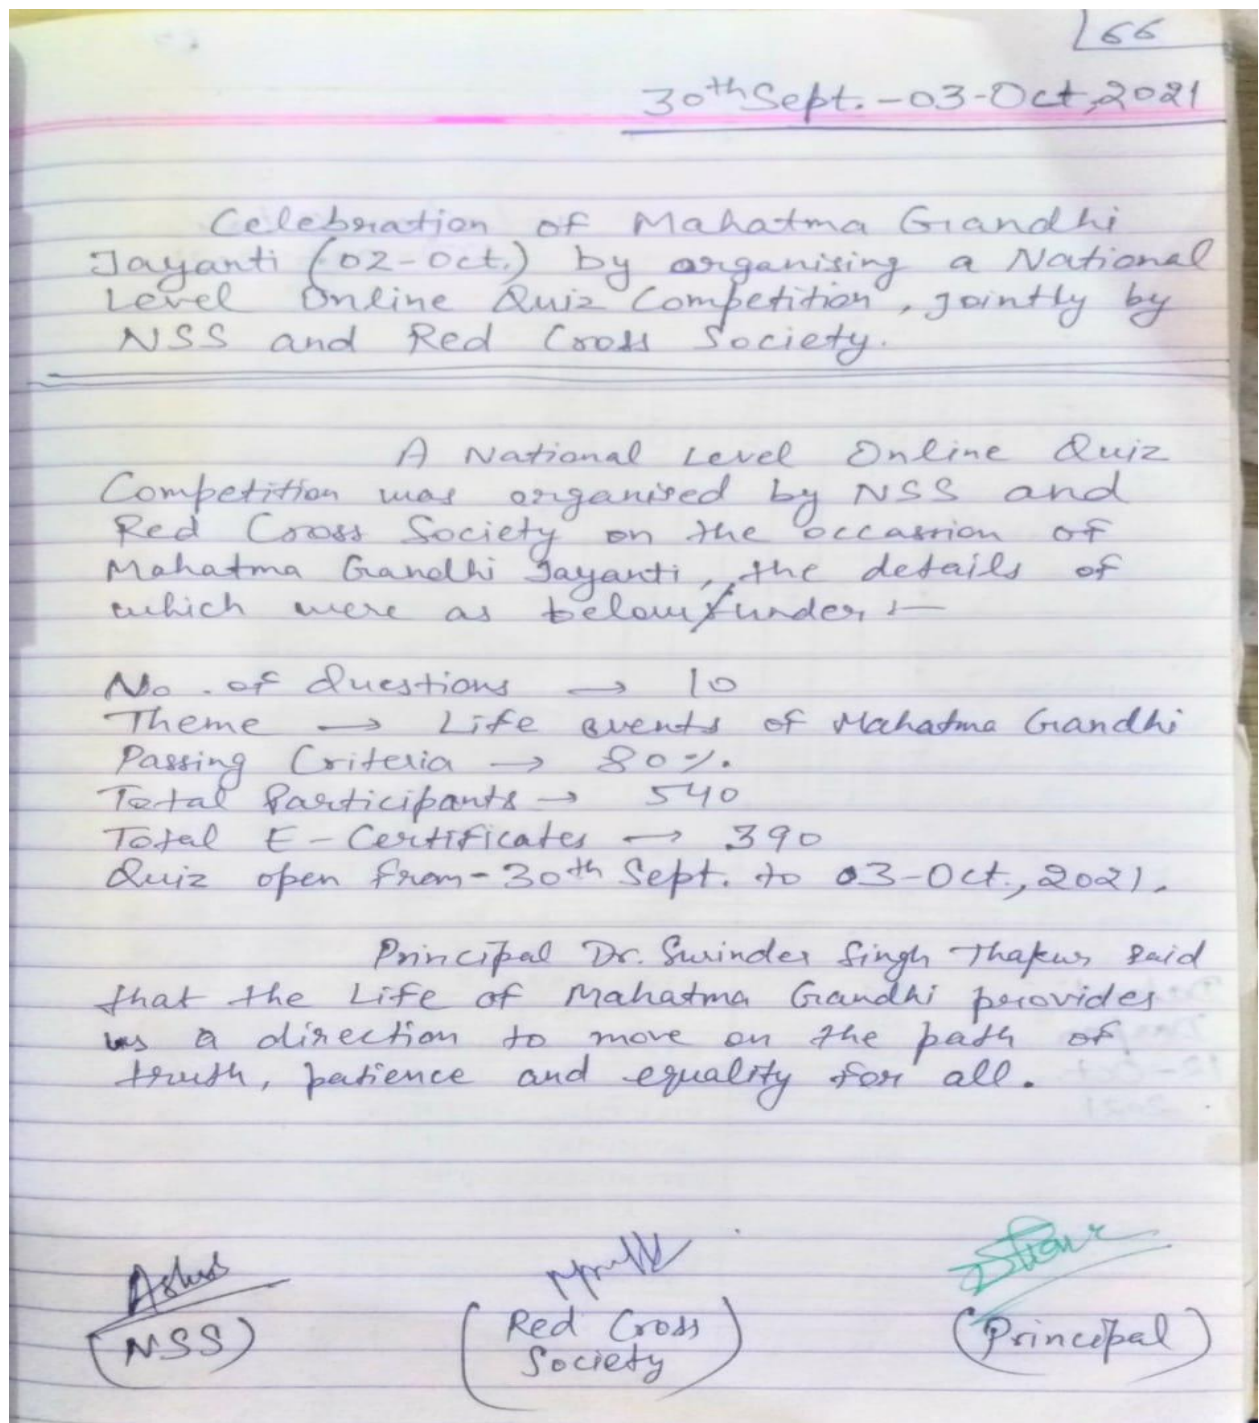 66
30th Sept. - 03-Oct, 2021
Celebration of Mahatma Gandhi
Jayanti (02-Oct.) by organising a National
Level Online Quiz Competition, jointly by
NSS and Red Cross Society.
A National Level Online Quiz
Competition was organised by NSS and
Red Cross Society on the occassion of
Mahatma Gandhi Jayanti, the details of
which were as below/under :-
No. of Questions → 10
Theme → Life events of Mahatma Gandhi
Passing Criteria → 80%.
Total Participants → 540
Total E-Certificates → 390
Quiz open from - 30th Sept. to 03-Oct., 2021.
Principal Dr. Surinder Singh Thakur said
that the Life of Mahatma Gandhi provides
us a direction to move on the path of
truth, patience and equality for all.
(NSS) (Red Cross Society) (Principal)